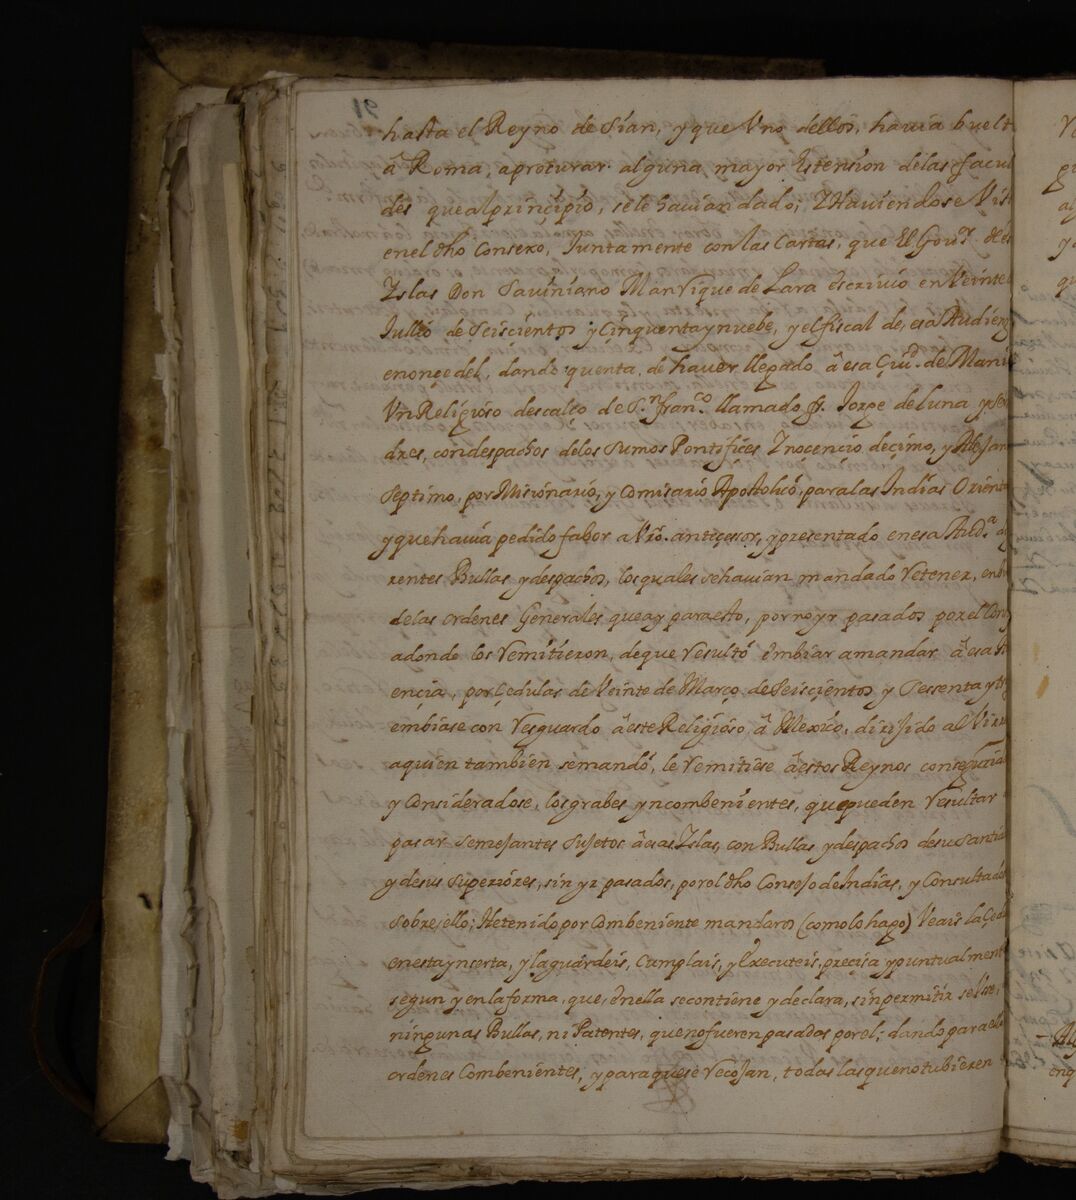 hasta el Reyno de Sian, y que Uno dellos, havia buelt
â Roma, a procurar alguna mayor Estension delas facul
des que al prinçipio, se le havian dado; Y Haviendose Vis
en el dho Consexo, Juntamente con las Cartas, que El Gouor. de es
Yslas Don Saviniano Manrique de Lara escrivio en Veinte
Jullio de Seiscientos y Çinquenta y nuebe, y el fiscal de, esa Audien
en onçe del, dando quenta, de haver llegado â esa Çiud. de Mani
Un Religioso descalço de Sn. Franco. llamado fr. Jorge de Luna y
dres, con despachos delos Sumos Pontifiçes Ynocencio deçimo, y Alejan
septimo, por Misionario, y Comisario Apostolico, para las Indias Orienta
y que havia pedido fabor a Vro. anteçesor, y presentado en esa Auda.
rentes Bullas y despachos, los quales se havian mandado Retener, en
delas ordenes Generales que ay para esto, por no yr pasados por el Con
adonde los Remitieron, de que Resultó embiar a mandar â esa A
ençia, por Çedulas de Veinte de Março de Seisçientos y Sessenta y
embiase con Resguardo â este Religioso â Mexico, dirijido al Virr
a quien tambien se mandó, le Remitiese â estos Reynos
y Considerados, los grabes ynconbenientes, que pueden Resultar
pasar semejantes Sujetos â esas Yslas, con Bullas y despachos de su Santi
y de sus Superiores, sin yr pasados, por el dho Consejo de Indias, y Consultado
sobre ello; He tenido por Combeniente mandaros (como lo hago) Veais la Çed
en esta ynserta, y la guardeis, Cumplais, y Executeis, preçisa y puntualment
segun y en la forma, que, en ella se contiene y declara, sin permitir se
ningunas Bullas, ni Patentes, que no fueren pasadas por el; dando para ello
ordenes Combenientes, y para que se Recojan, todas las que no tubieren